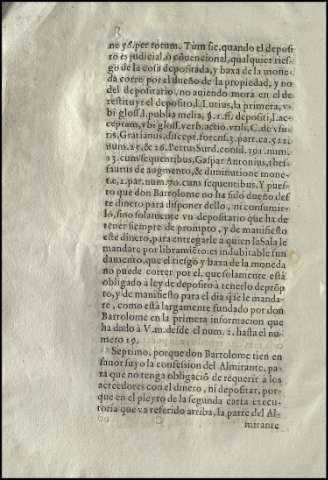 ne 56. per totum. Tùm sic, quando el deposi
to es judicial, ò conuencional, qualquier ries-
go de la cosa depositada, y baxa de la mone-
da corre por el dueño de la propiedad, y no
del depositario, no auiendo mora en el de
restituyr el deposito, l. Lutius, la primera, v-
bi gloss. l. publia melia, §. 1. ff. depositi, l. ac-
ceptam, vbi gloss. verb. actio. vnli, C. de vsu-
ris, Gratianus, discept. forens. 3. part. ca. 522.
num. 25. & 26. Petrus Surd. consil. 191. num.
13. cum sequentibus, Gaspar Antonius, thes-
saurus de augmento, & diminutione mone-
tæ, 2. par. num. 70. cum sequentibus. Y pues-
to que don Bartolome no ha sido dueño des
te dinero para disponer dello, ni consumir-
lo, sino solamente vn depositario que ha de
tener siempre de prompto, y de manifiesto
este dinero, para entregarle a quien la Sala le
mandare por libramiẽto: es indubitable fun
damento, que el riesgo y baxa de la moneda
no puede correr por el, que solamente està
obligado à ley de deposito à tenerlo deprõp
to, y de manifiesto para el dia q̃ se le manda-
re, como està largamente fundado por don
Bartolome en la primera informacion que
ha dado à V.m. desde el num. 2. hasta el nu
mero 19.
Septimo, porque don Bartolome tien en
fauor suyo la confession del Almirante, pa
ra que no tenga obligació de requerir a los
acreedores con el dinero, ni depositar, por-
que en el pleyto de la segunda carta execu-
toria que va referido arriba, la parte del Al-
mirante